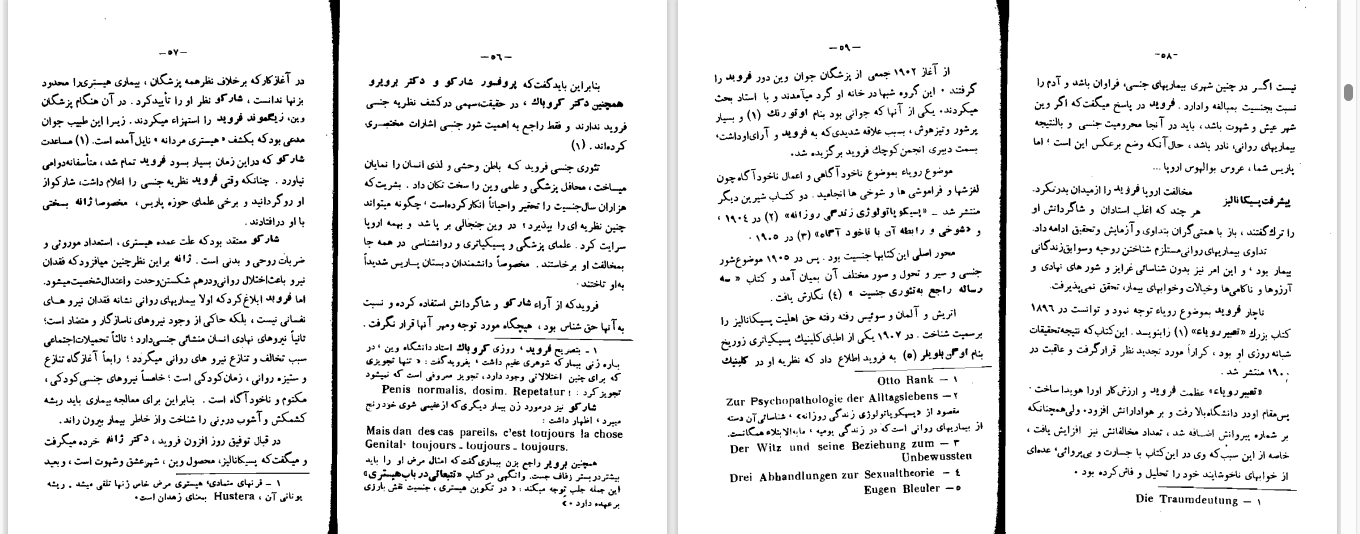 −٥٦−
بنابراین باید گفت که پروفسور شارکو و دکتر برویرو
همچنین دکتر کروباك ، در حقیقت،سهمی درکشف نظریه جنسی
فروید ندارند و فقط راجع به اهمیت شور جنسی اشارات مختصری
کرده‌اند. (۱)
تئوری جنسی فروید کـه باطن وحشی و لذی انسان را نمایان
میساخت ، محافل پزشگی و علمی وین را سخت تکان داد . بشریت‌که
هزاران سال‌جنسیت را تحقیر واحیاناً انکارکرده‌است ؛ چگونه میتواند
چنین نظریه ای را بپذیرد ؛ در وین جنجالی بر پا شد و بهمه اروپا
سرایت کرد . علمای پزشگی و پسیکیاتری و روانشناسی در همه جا
بمخالفت او برخاستند . مخصوصاً دانشمندان دبستان پـاریس شدیداً
به‌او تاختند ·
فرویدکه از آراء شارکو و شاگردانش استفاده کرده و نسبت
به‌آنها حق شناس بود ، هیچگاه مورد توجه ومهر آنها قرار نگرفت .
۱ − بتصریح فروید ، روزی کروباك استاد دانشگاه وین ، در
بـاره زنی بیمار که شوهری عقیم داشت ، بفرویدگفت : « تنها تجویزی
که برای چنین اختلالاتی وجود دارد، تجویز معروفی است که نمیشود
تجویز کرد : Penis normalis, dosim. Repetatur !
شارکو نیز درمورد زن بیمار دیگری که ازعقیمی شوی خود رنج
میبرد ، اظهار داشت :
Mais dan des cas pareils, c'est toujours la chose
Genital، toujours _ toujours _ toujours.
همچنین برویر راجع بزن بیماری گفت که امثال مرض او را باید
بیشتر دربستر زفاف جست. وانگهی در کتاب «تتبعاتی درباب هیستری»
این جمله جلب توجه میکند : « در تکوین هیستری ، جنسیت نقش بارزی
برعهده دارد ».
−٥٧−
در آغازکارکه برخلاف نظرهمه پزشگان ، بیماری هیستری‌را محدود
بزنها ندانست ، شارکو نظر او را تأییدکرد . در آن هنگام پزشگان
وین، زیگموند فروید را استهزاء میکردند. زیـرا این طبیب جوان
مدعی بود که بکشف « هیستری مردانه » نایل آمده است. (۱) مساعدت
شارکو که دراین زمان بسیار بسود فروید تمام شد ، متأسفانه‌دوامی
نیاورد . چنانکه وقتی فروید نظریه جنسی را اعلام داشت، شارکواز
او روگردانید و برخی علمای حوزه پاریس ، مخصوصا ژانه بسختی
با او درافتادند.
شارکو معتقد بودکه علت عمده هیستری ، استعداد موروثی و
ضربات روحی و بدنی است . ژانه براین نظرچنین میافزودکه فقدان
نیرو باعث‌اختلال روانی‌ودرهم شکستن‌وحدت واعتدال‌شخصیت‌میشود.
اما فروید ابلاغ‌کردکه اولا بیماریهای روانی نشانه فقدان نیرو هـای
نفسانی نیست ، بلکه حاکی از وجود نیروهای ناسازگار و متضاد است؛
ثانیاً نیروهای نهادی انسان منشائی جنسی‌دارد ؛ ثالثاً تحمیلات‌اجتماعی
سبب تخالف و تنازع نیرو های روانی میگردد ؛ رابعاً آغازگاه تنازع
و ستیزه روانی ، زمان‌کودکی است ؛ خامساً نیروهای جنسی‌کودکی ،
مکتوم و ناخودآگاه است . بنابراین برای معالجه بیماری باید ریشه
کشمکش و آشوب درونی را شناخت و از خاطر بیمار بیرون راند.
در قبال توفیق روز افزون فروید، دکتر ژانه خرده میگرفت
و میگفت‌که پسیکانالیز، محصول وین ، شهرعشق وشهوت است ، و بعید
۱ − قرنهای متمادی، هیستری مرض خاص زنها تلقی میشد . ریشه
یونانی آن ، Hustera بمعنای زهدان است.
−٥٨−
نیست اگـر در چنین شهری بیماریهای جنسی، فراوان باشد و آدم را
نسبت بجنسیت بمبالغه وادارد . فروید در پاسخ میگفت‌که اگر وین
شهر عیش و شهوت باشد ، باید در آنجا محرومیت جنسی و بالنتیجه
بیماریهای روانی، نادر باشد ، حال‌آنکه وضع برعکس این است ؛ اما
پاریس شما ، عروس بوالهوس اروپا...
پیشرفت پسیکانالیز
مخالفت اروپا فروید را ازمیدان بدرنکرد.
هر چند که اغلب استادان و شاگردانش او
را ترك‌گفتند ، باز با همتی‌گران بتداوی وآزمایش وتحقیق ادامه داد.
تداوی بیماریهای روانی‌مستلزم شناختن روحیه وسوابق‌زندگانی
بیمار بود ، و این امر نیز بدون شناسائی غرایز و شور های نهادی و
آرزوها و ناکامی‌ها وخیالات وخوابهای بیمار، تحقق نمی‌پذیرفت.
ناچار فروید بموضوع رویاء توجه نمود و توانست در ۱۸۹٦
کتاب بزرك «تعبیر رویاء» (۱) رابنویسد . این‌کتاب‌که نتیجه‌تحقیقات
شبانه روزی او بود ، کراراً مورد تجدید نظر قرارگرفت و عاقبت در
۱۹۰۰ منتشر شد .
«تعبیر رویاء» عظمت فروید و ارزش‌کار اورا هویدا ساخت ·
پس‌مقام اودر دانشگاه‌بالا رفت و بر هوادارانش افزود، ولی‌همچنانکه
بر شماره پیروانش اضـافه شد ، تعداد مخالفانش نیز افزایش یافت ،
خاصه از این سبب‌که وی در این‌کتاب با جسارت و بی‌پروائی، عده‌ای
از خوابهای ناخوشایند خود را تحلیل و فاش‌کرده بود ·
۱ − Die Traumdeutung
−٥٩−
از آغاز ۱۹۰۲ جمعی از پزشگان جوان وین دور فروید را
گرفتند ٠ این گروه شبها در خانه او گرد میآمدند و با استاد بحث
میکردند، یکی از آنها که جوانی بود بنام اوتو رنك (۱) و بسیار
پرشور وتیزهوش ، بسبب علاقه شدیدی‌که به فروید و آرای‌اوداشت،
بسمت دبیری انجمن‌کوچك فروید برگزیده شد.
موضوع رویاء بموضوع ناخودآگاهی و اعمال ناخودآگاه‌چون
لغزشها و فراموشی ها و شوخی ها انجامید . دو کتـاب شیرین دیگر
منتشر شد ــ «پسیکوپاتولوژی زندگی روزانه» (۲) در ۱۹۰٤ ،
و «شوخی و رابطه آن با ناخود آگاه» (۳) در ۱۹۰٥ ·
محور اصلی این کتابها جنسیت بود . پس در ۱۹۰٥ موضوع‌شور
جنسی و سیر و تحول و صور مختلف آن بمیان آمد و کتاب « سه
رساله راجع به‌تئوری جنسیت » (٤) نگارش یافت .
اتریش و آلمان و سوئیس رفته رفته حق اهلیت پسیکانالیز را
برسمیت شناخت . در ۱۹۰۷ یکی از اطبای‌کلینیك پسیکیاتری زوریخ
بنام اوگن بلویلر (٥) به فروید اطلاع داد که نظریه او در کلینیك
۱ − Otto Rank
۲− Zur Psychopathologie der Alltagslebens
مقصود از «پسیکوپاتولوژی زندگی روزانه» ، شناسائی آن دسته
از بیماریهای روانی است که در زندگی یومیه ، مابه‌الابتلاء همگانست.
۳ − Der Witz und seine Beziehung zum
Unbewussten
٤ − Drei Abhandlungen zur Sexualtheorie
٥ − Eugen Bleuler